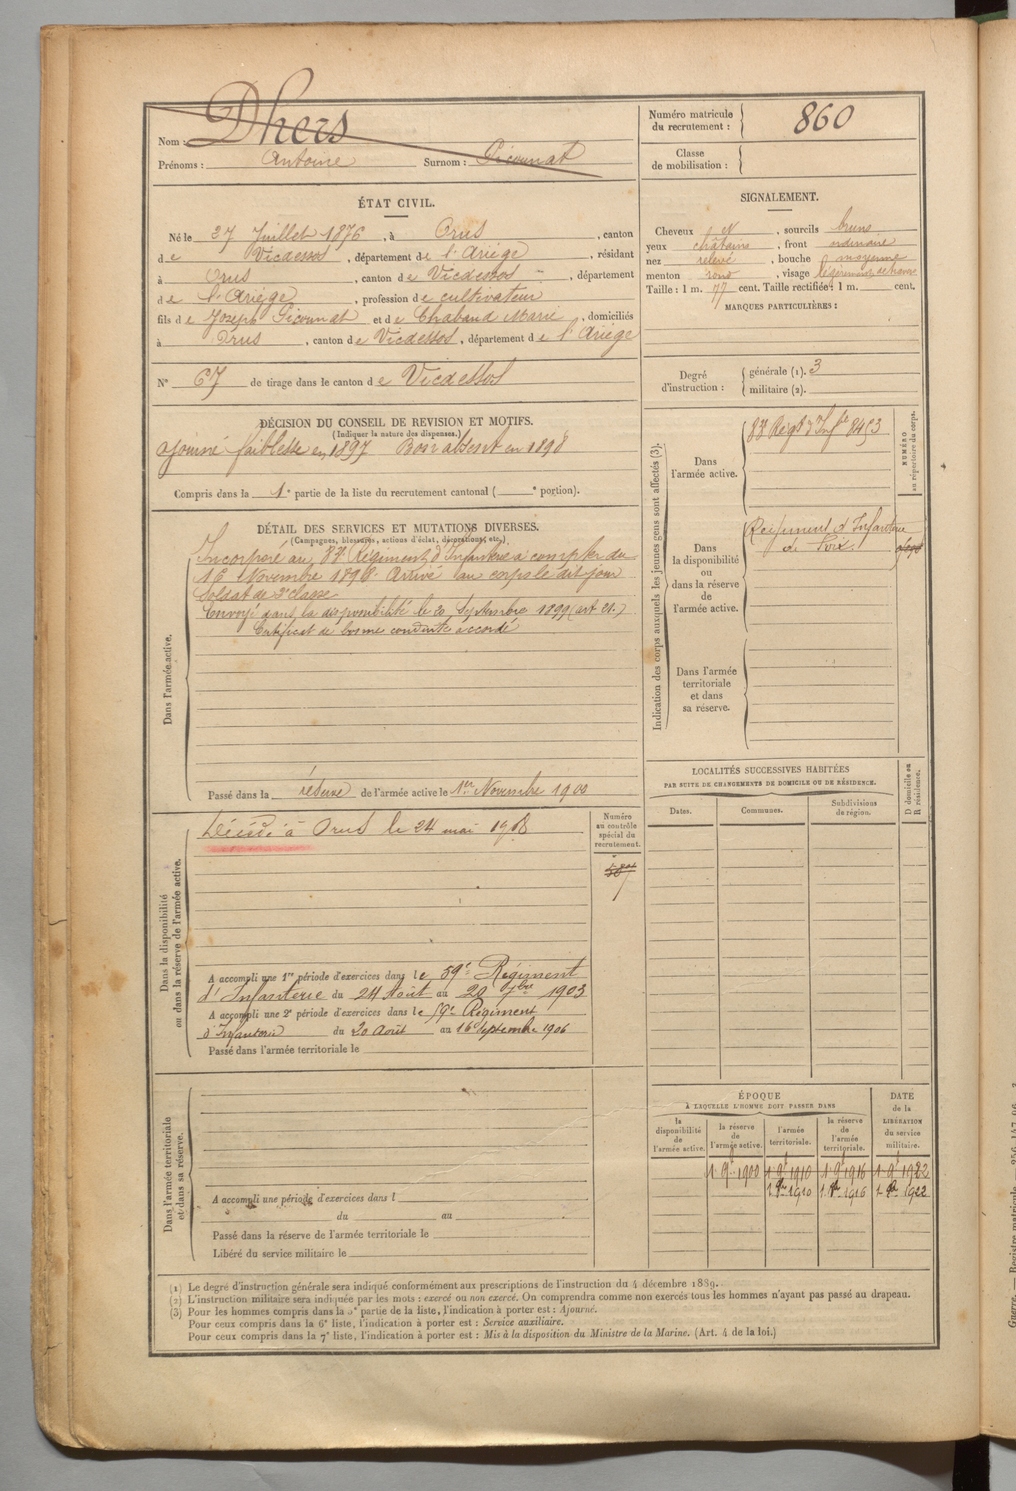 Nom : Dhers
Prénoms : Antoine Surnom : Picounat
Numéro matricule du recrutement : 860
Classe de mobilisation :
ÉTAT CIVIL.
Né le 27 Juillet 1876, à Orus, canton
de Vicdessos, département de l'Ariège, résidant
à Orus, canton de Vicdessos, département
de l'Ariège, profession de cultivateur
fils de Joseph Picounat et de Chabaud Marie, domiciliés
à Orus, canton de Vicdessos, département de l'Ariège
N° 67 de tirage dans le canton de Vicdessos
SIGNALEMENT.
Cheveux N, sourcils bruns
yeux châtains, front ordinaire
nez relevé, bouche moyenne
menton rond, visage
Taille : 1 m. 77 cent. Taille rectifiée : 1 m. cent.
MARQUES PARTICULIÈRES :
Degré d'instruction : générale (1). 3
militaire (2).
DÉCISION DU CONSEIL DE REVISION ET MOTIFS.
(Indiquer la nature des dispenses.)
Ajourné faiblesse en 1897 Bon absent en 1898
Compris dans la 1e partie de la liste du recrutement cantonal ( e portion).
DÉTAIL DES SERVICES ET MUTATIONS DIVERSES.
(Campagnes, blessures, actions d'éclat, décorations, etc.)
Dans l'armée active.
Incorporé au 83e Régiment d'Infanterie à compter du
16 Novembre 1898. Arrivé au corps le dit jour
Soldat de 2e classe
Envoyé dans la disponibilité le 20 Septembre 1899 (art. 21.)
Certificat de bonne conduite accordé
Passé dans la réserve de l'armée active le 1er Novembre 1900
Indication des corps auxquels les jeunes gens sont affectés (3).
NUMÉRO au répertoire du corps.
Dans l'armée active.
83 Régt d'Infie 8453
Dans la disponibilité ou dans la réserve de l'armée active.
Régiment d'Infanterie
de Foix.
Dans l'armée territoriale et dans sa réserve.
LOCALITÉS SUCCESSIVES HABITÉES
PAR SUITE DE CHANGEMENTS DE DOMICILE OU DE RÉSIDENCE.
Dates. Communes. Subdivisions de région. D domicile ou R résidence.
Dans la disponibilité ou dans la réserve de l'armée active.
Numéro au contrôle spécial du recrutement.
Décédé à Orus le 24 mai 1908
A accompli une 1re période d'exercices dans le 59e Régiment
d'Infanterie du 24 Août au 20 7bre 1903
A accompli une 2e période d'exercices dans le 59e Régiment
d'Infanterie du 20 Août au 16 Septembre 1906
Passé dans l'armée territoriale le
Dans l'armée territoriale et dans sa réserve.
A accompli une période d'exercices dans l
du au
Passé dans la réserve de l'armée territoriale le
Libéré du service militaire le
ÉPOQUE
À LAQUELLE L'HOMME DOIT PASSER DANS
DATE de la LIBÉRATION du service militaire.
la disponibilité de l'armée active. la réserve de l'armée active. l'armée territoriale. la réserve de l'armée territoriale.
1 9e 1900 1 9e 1910 1 9e 1916 1 9e 1922
1 8re 1910 1 8re 1916 1 8re 1922
(1) Le degré d'instruction générale sera indiqué conformément aux prescriptions de l'instruction du 4 décembre 1889.
(2) L'instruction militaire sera indiquée par les mots : exercé ou non exercé. On comprendra comme non exercés tous les hommes n'ayant pas passé au drapeau.
(3) Pour les hommes compris dans la 5e partie de la liste, l'indication à porter est : Ajourné.
Pour ceux compris dans la 6e liste, l'indication à porter est : Service auxiliaire.
Pour ceux compris dans la 7e liste, l'indication à porter est : Mis à la disposition du Ministre de la Marine. (Art. 4 de la loi.)